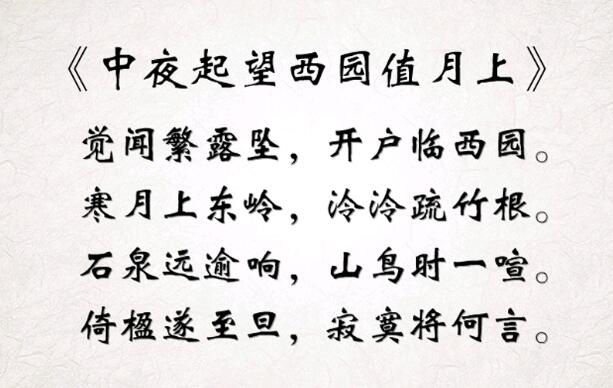 《中夜起望西园值月上》
觉闻繁露坠，开户临西园。
寒月上东岭，泠泠疏竹根。
石泉远逾响，山鸟时一喧。
倚楹遂至旦，寂寞将何言。